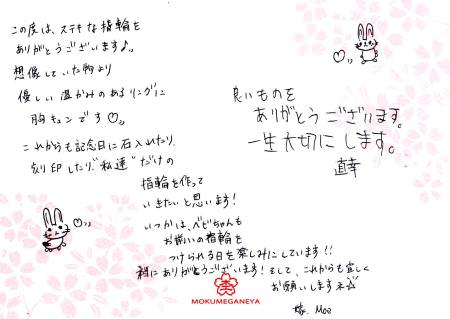 この度は、ステキな指輪を
ありがとうございます♪。
想像していた物より
優しい温かみのあるリングに
胸キュンです♡。
これからも記念日に石入れたり
刻印したり、"私達"だけの
指輪を作って
いきたいと思います!
いつかは、ベビちゃんも
お揃いの指輪を
つけられる日を楽しみにしています!!
本当にありがとうございます!そして、これからも宜しく
お願いします☆
嫁. Moe
良いものを
ありがとうございます。
一生大切にします。
直幸
MOKUMEGANEYA